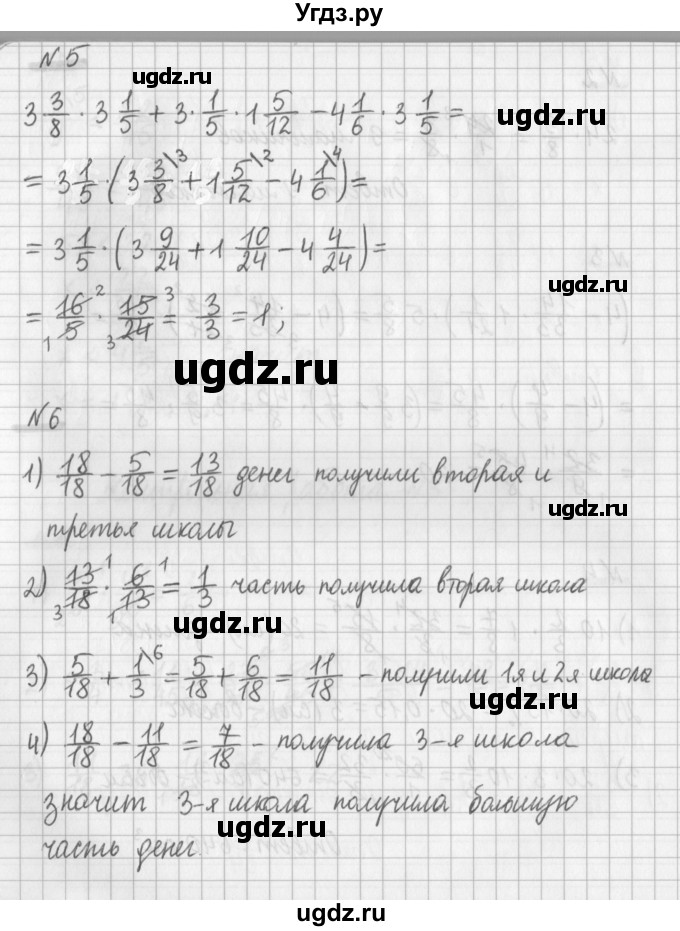 Угдз.ру
№5
ugdz.ru
3 3/8 · 3 1/5 + 3· 1/5 · 1 5/12 − 4 1/6 · 3 1/5 =
ugdz.ru
= 3 1/5 · (3 3/8 \3 + 1 5/12 \2 − 4 1/6 \4) =
= 3 1/5 · (3 9/24 + 1 10/24 − 4 4/24) =
ugdz.ru
= 16/5 · 15/24 = 3/3 = 1;
2 3
1 3
ugdz.ru
№6
1) 18/18 − 5/18 = 13/18 денег получили вторая и
ugdz.ru
третья школы
2) 13/18 · 6/13 = 1/3 часть получила вторая школа
1 1
3 1
ugdz.ru
3) 5/18 + 1/3 \6 = 5/18 + 6/18 = 11/18 - получили 1я и 2я школа
ugdz.ru
4) 18/18 − 11/18 = 7/18 - получила 3-я школа
значит 3-я школа получила большую
ugdz.ru
часть денег.
ugdz.ru